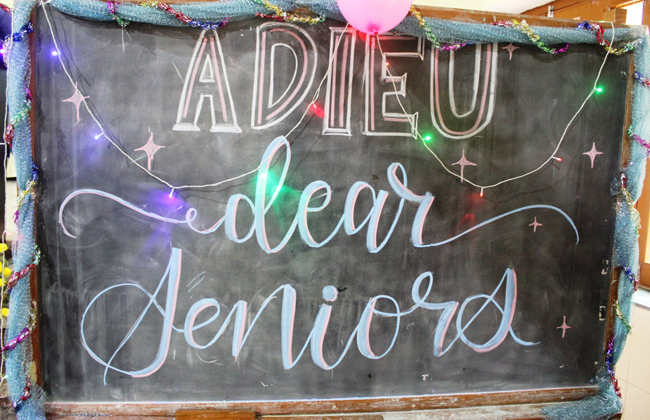 ADIEU
dear
Seniors